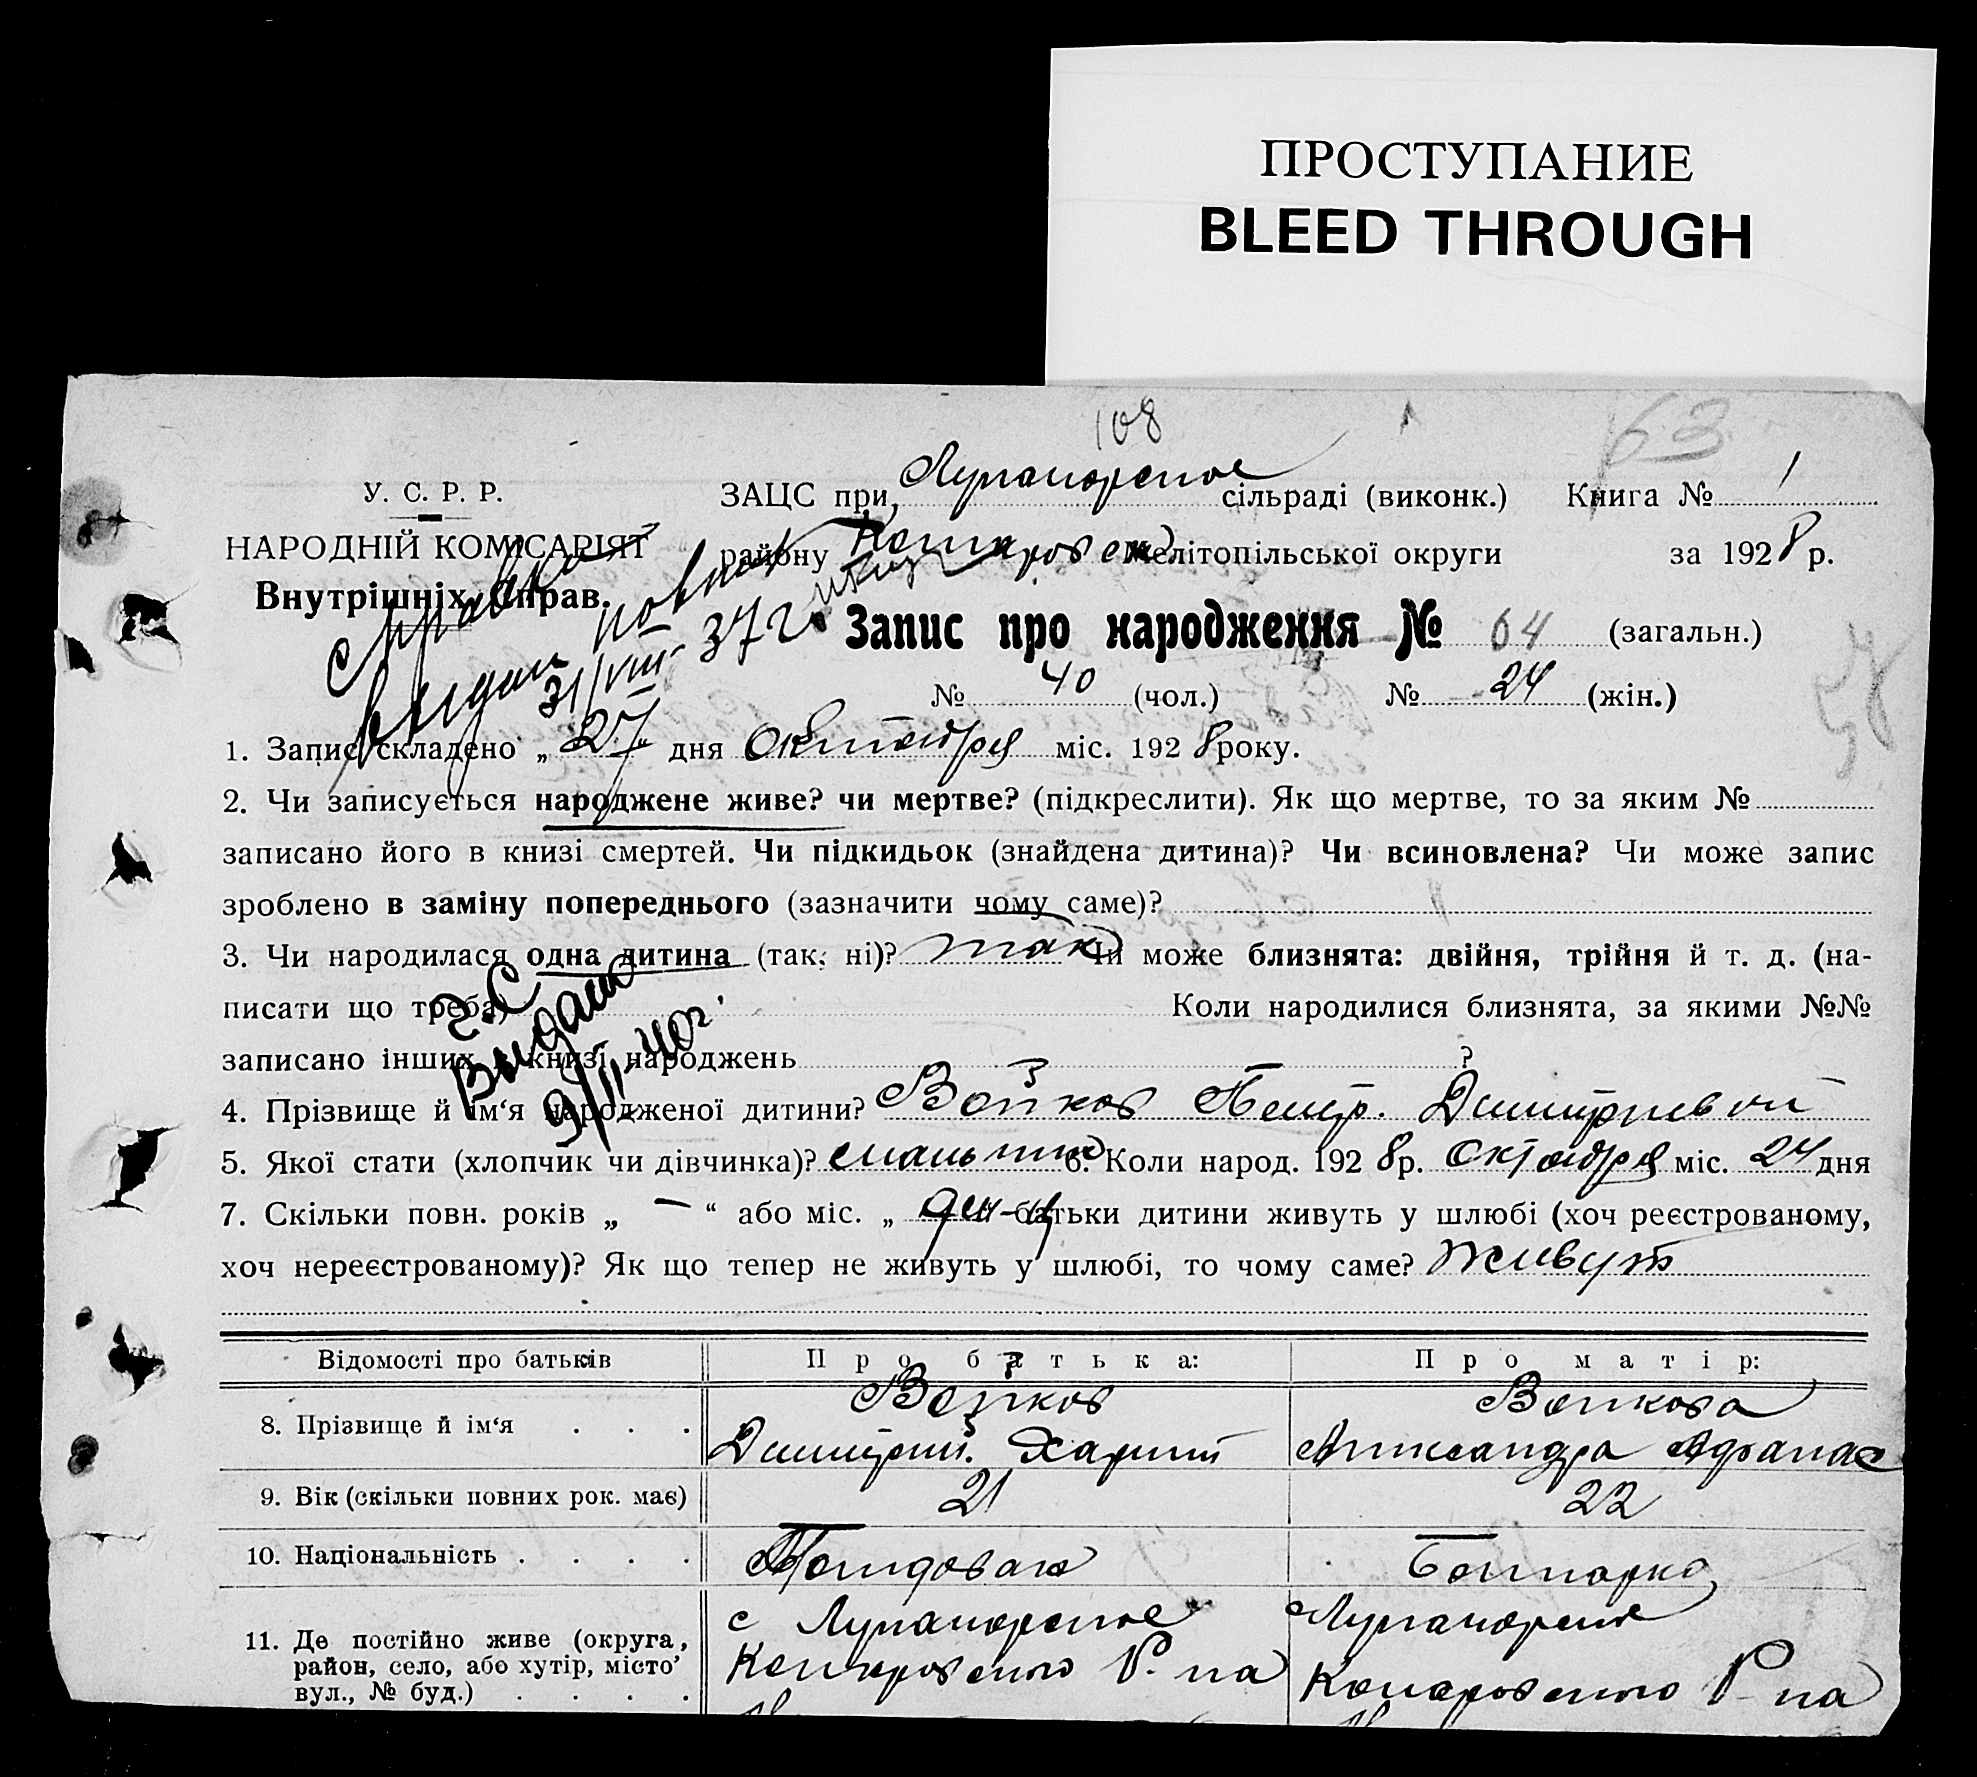 ПРОСТУПАНИЕ
BLEED THROUGH
108
63
У. С. Р. Р.
НАРОДНІЙ КОМІСАРІЯТ
Внутрішніх Справ.
ЗАЦС при сільраді (виконк.) Книга № 1
району Мелітопільської округи за 1928 р.
Запис про народження № 64 (загальн.)
№ 40 (чол.) № 24 (жін.)
Справка
выдана
31/VIII 37 г
1. Запис складено „27“ дня Октября міс. 1928 року.
2. Чи записується народжене живе? чи мертве? (підкреслити). Як що мертве, то за яким №
записано його в книзі смертей. Чи підкидьок (знайдена дитина)? Чи всиновлена? Чи може запис
зроблено в заміну попереднього (зазначити чому саме)?
3. Чи народилася одна дитина (так, ні)? так Чи може близнята: двійня, трійня й т. д. (на-
писати що треба) Коли народилися близнята, за якими №№
записано інших в книзі народжень ?
Выдано
9/II 40 г.
4. Прізвище й ім‘я народженої дитини? Войков Петр. Дмитриевич
5. Якої стати (хлопчик чи дівчинка)? мальчик 6. Коли народ. 1928 р. Октября міс. 24 дня
7. Скільки повн. років „ — “ або міс. „ батьки дитини живуть у шлюбі (хоч реєстрованому,
хоч нереєстрованому)? Як що тепер не живуть у шлюбі, то чому саме? живут
Відомості про батьків Про батька: Про матір:
8. Прізвище й ім‘я . . . Войков Войкова
Дмитрий. Харит Александра Афанас
9. Вік (скільки повних рок. має) 21 22
10. Національність . . . . Молдован Болгарка
11. Де постійно живе (округа,
район, село, або хутір, місто
вул., № буд.) . . . .
с Р-на
Р-на